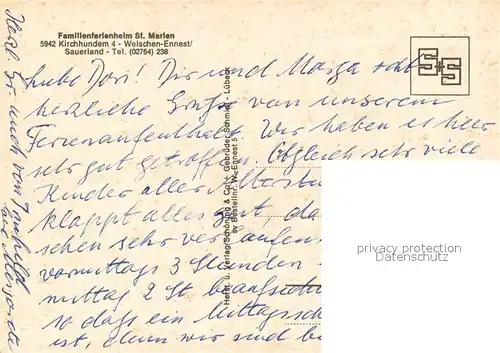 Familienferienheim St. Marien
5942 Kirchhundem 4 - Welschen-Ennest/
Sauerland - Tel. (02764) 238
Liebe Dori! Dir und Marga recht
herzliche Grüße von unserem
Ferienaufenthalt. Wir haben es hier
sehr gut getroffen. Obgleich sehr viele
Kinder aller Altersstu
klappt alles gut. da
schen sehr verlaufen
vormittags 3 Stunden
mittag 2 St. beaufsicht
so daß ein Mittagssch
ist, denn wir sind b
Herst. u. Verlag Schöning & Co. + Gebrüder Schmidt - Lübeck
by Bestellnr. W.-Ennest 5
Herzl. Gr. auch von
aus
privacy protection
Datenschutz